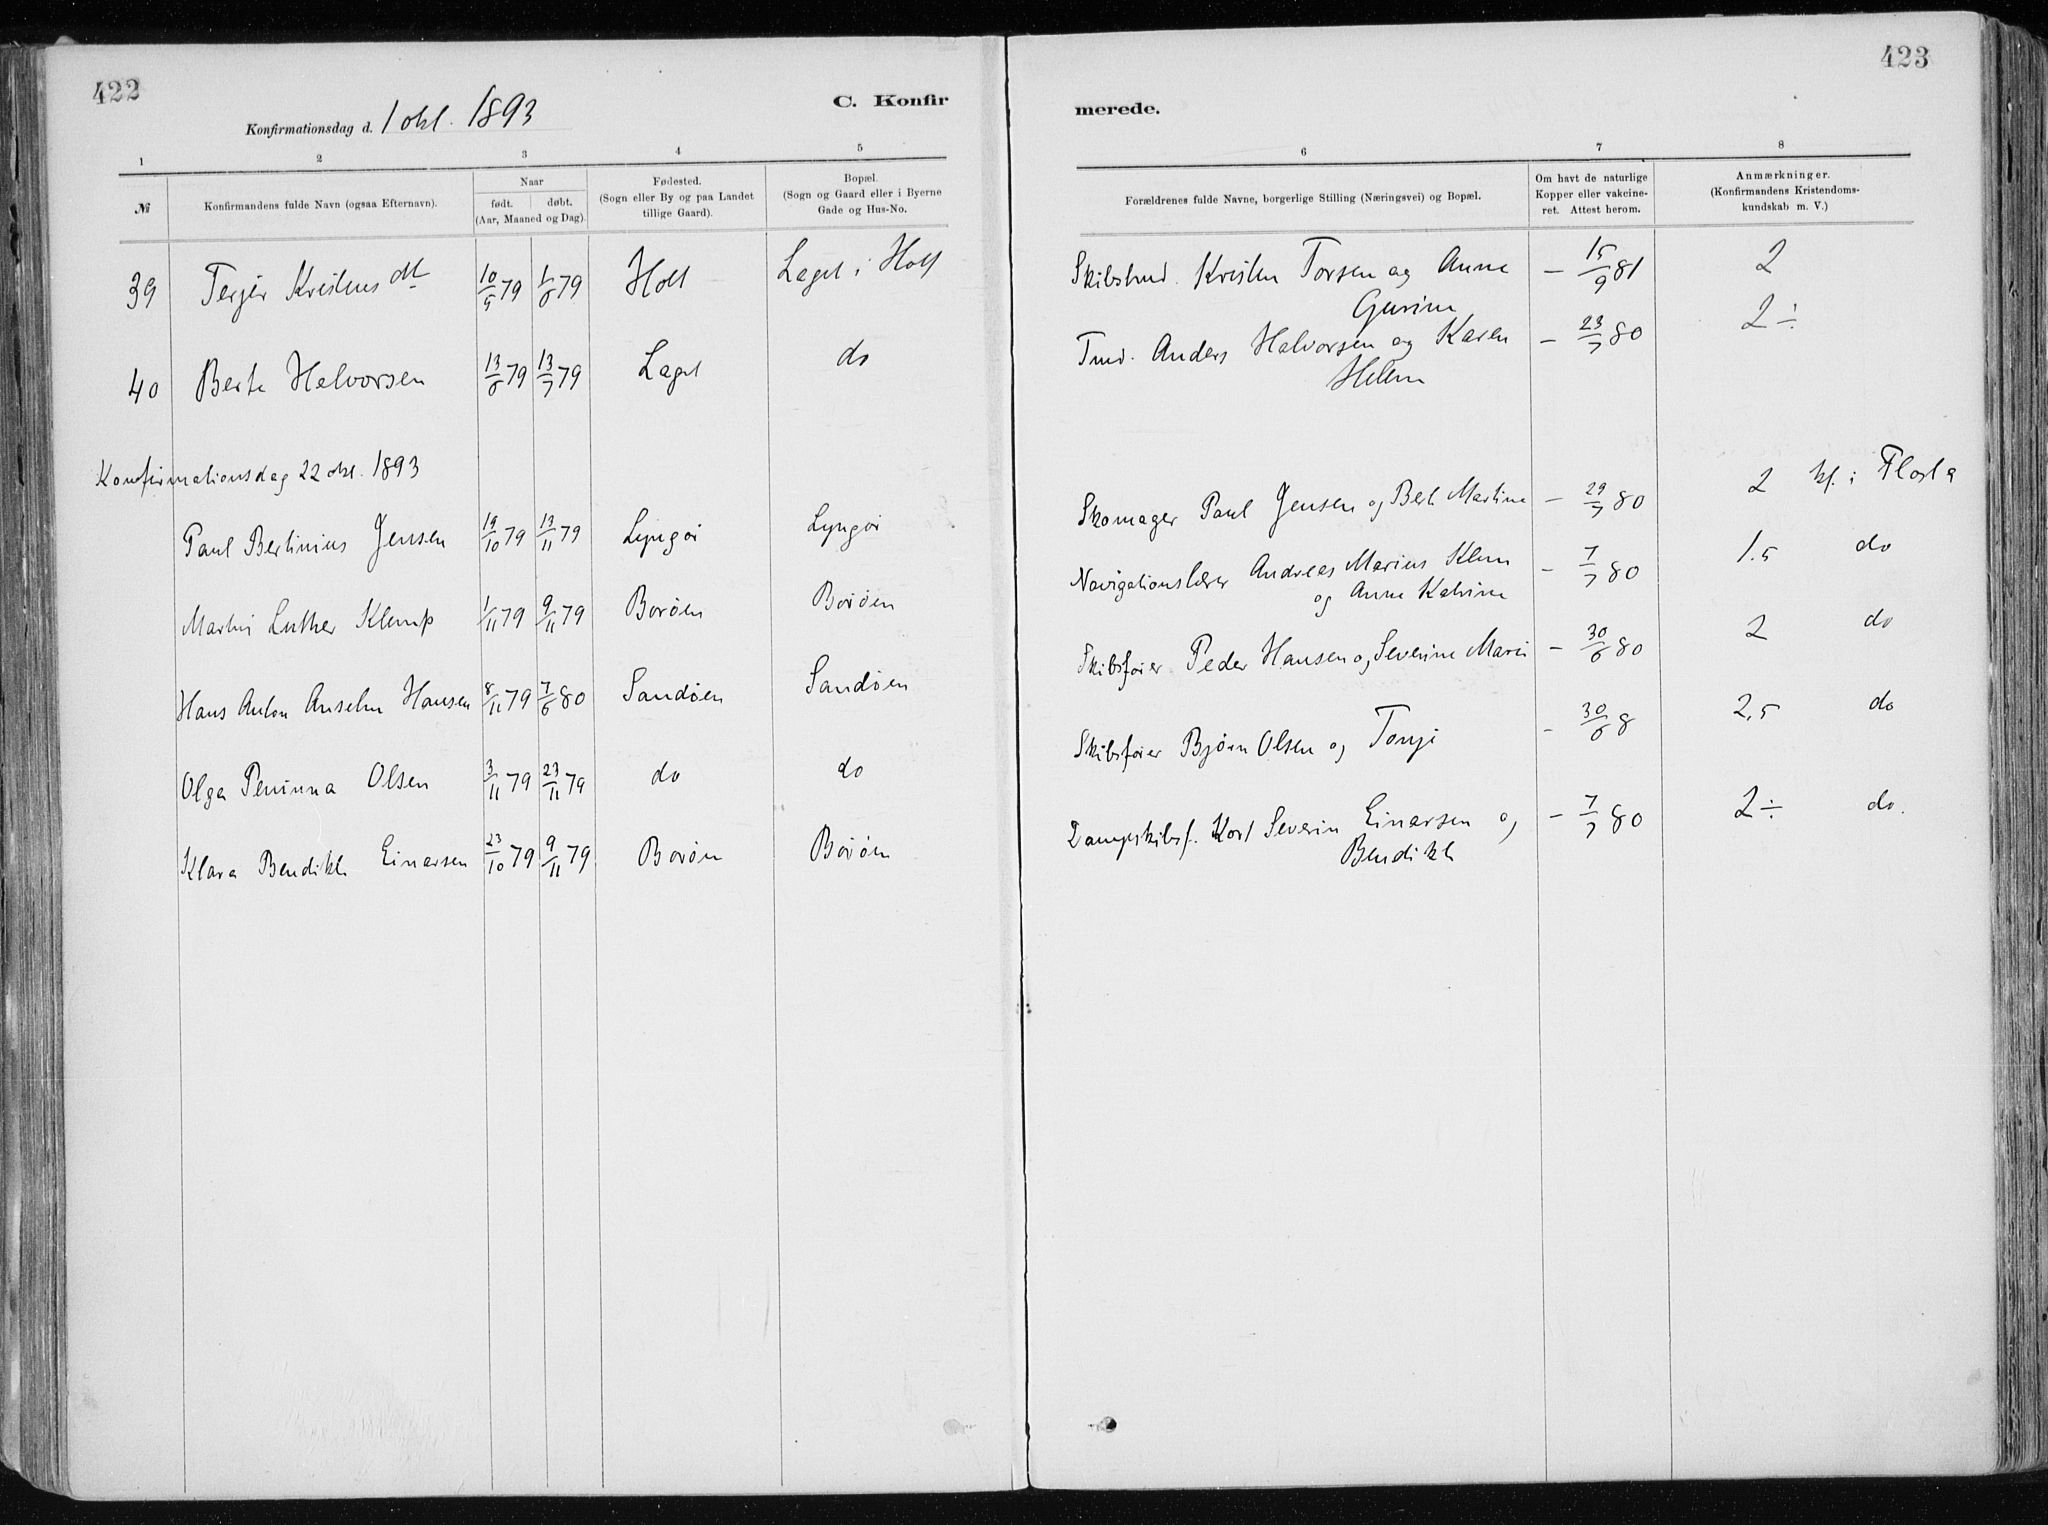 422
Konfirmationsdag d. 1 okt. 1893
C. Konfir
1 2 3 4 5
№
Konfirmandens fulde Navn (ogsaa Efternavn).
Naar
født. døbt.
(Aar, Maaned og Dag).
Fødested.
(Sogn eller By og paa Landet
tillige Gaard).
Bopæl.
(Sogn og Gaard eller i Byerne
Gade og Hus-No.
39 Terjer Kristens dtr 10/5 79 1/6 79 Holt Laget i Holt
40 Berte Halvorsen 13/6 79 13/7 79 Laget do
Konfirmationsdag 22 okt. 1893
Paul Bertinius Jensen 19/10 79 13/11 79 Lyngør Lyngør
Martin Luther Klemp 1/11 79 9/11 79 Borøen Borøen
Hans Anton Anselm Hansen 8/11 79 7/6 80 Sandøen Sandøen
Olga Peninna Olsen 3/11 79 23/11 79 do do
Klara Bendikte Einarsen 23/10 79 9/11 79 Borøen Borøen
423
merede.
6 7 8
Forældrenes fulde Navne, borgerlige Stilling (Næringsvei) og Bopæl.
Om havt de naturlige
Kopper eller vakcine-
ret. Attest herom.
Anmærkninger.
(Konfirmandens Kristendoms-
kundskab m. V.)
Skibstmd. Kristen Torsen og Anne — 15/9 81 2
Gurine
Tmd. Anders Halvorsen og Karen — 23/7 80 2÷
Helene
Skomager Paul Jensen og Berte Martine — 29/7 80 2 kf. i Flosta
Navigationslærer Andreas Marius Klem — 7/7 80 1.5 do
og Anne Katrine
Skibsfører Peder Hansen og Severine Marie — 30/6 80 2 do
Skibsfører Bjørn Olsen og Tonje — 30/6 8 2,5 do
Dampskibsf. Kort Severin Einersen og — 7/7 80 2÷ do.
Bendikte